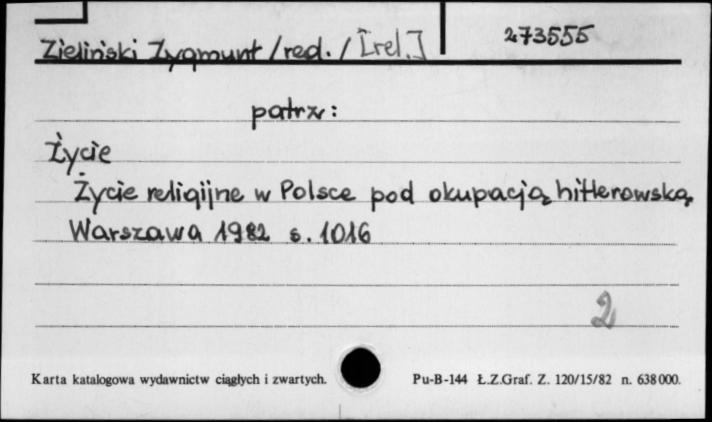 273555
Zieliński Zygmunt /red./ [rel.]
patrz:
Życie
Życie religijne w Polsce pod okupacją hitlerowską
Warszawa 1982 s. 1016
2
Karta katalogowa wydawnictw ciągłych i zwartych. Pu-B-144 Ł.Z.Graf. Z. 120/15/82 n. 638 000.